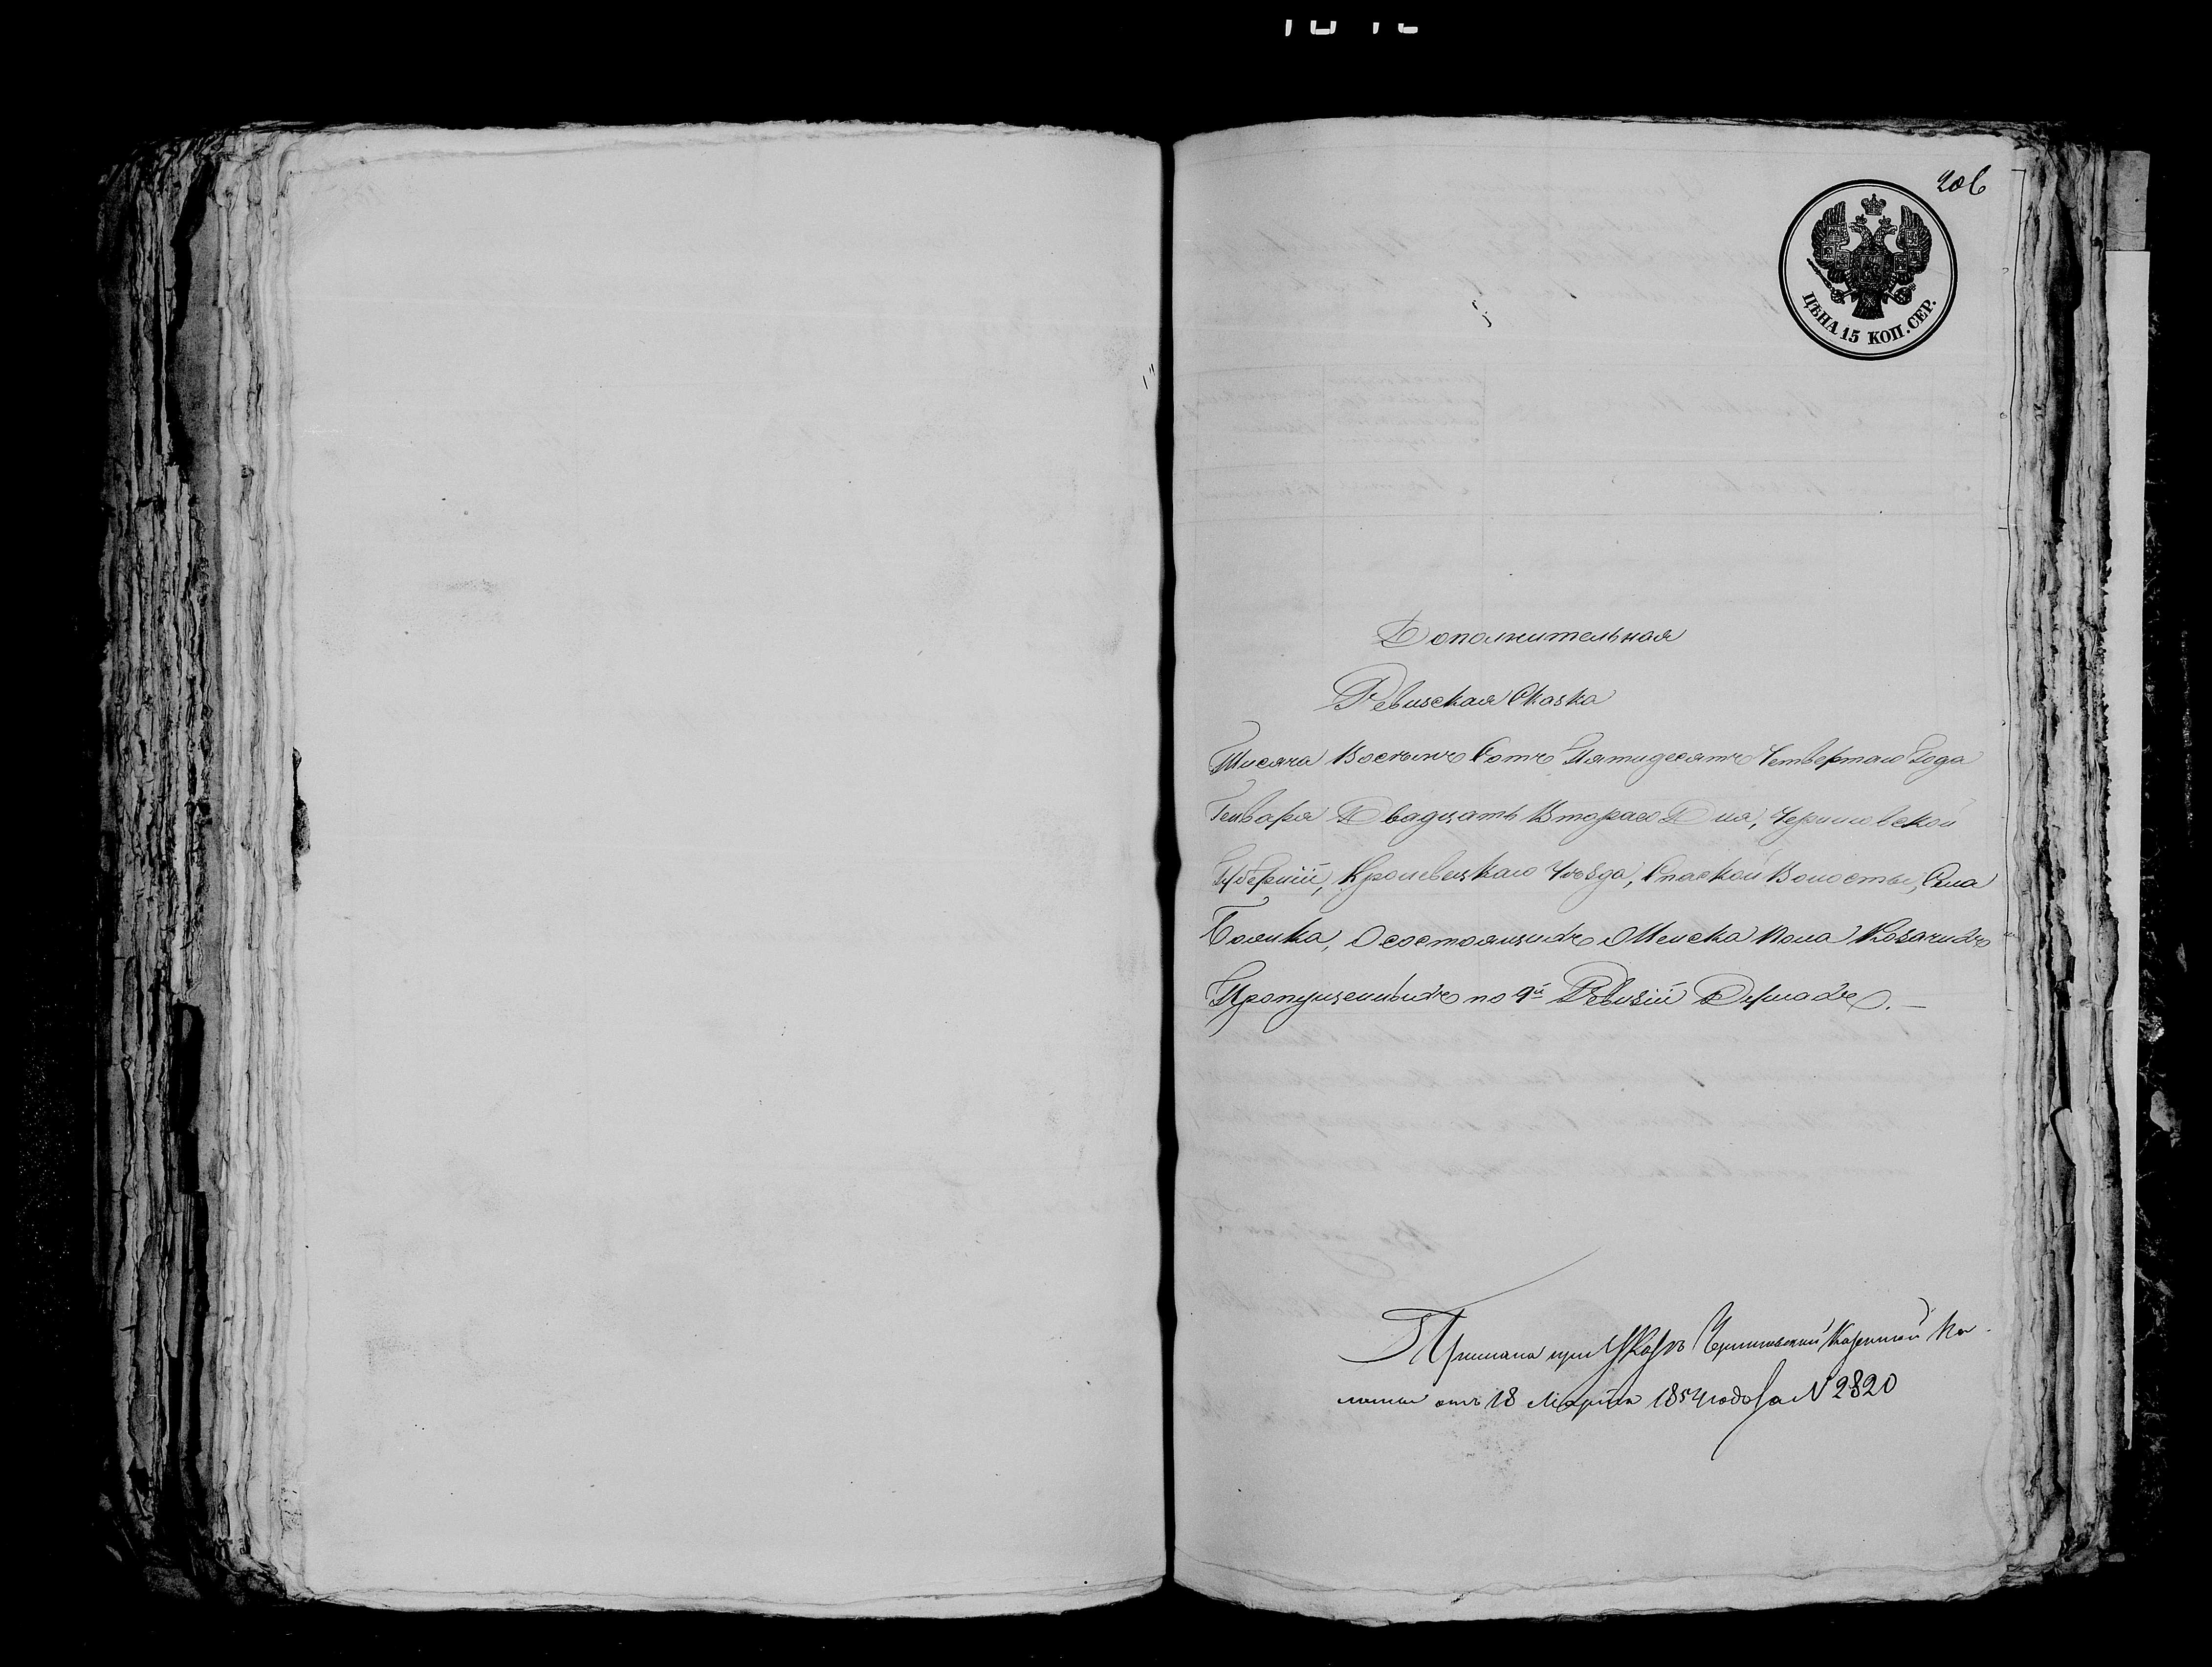 206
ЦѢНА 15 КОП. СЕР.
Дополнительная
Ревизская Сказка
Тисяча Восемъ Сотъ Пятидесятъ Четвертаго Года
Генваря Двадцать Втораго Дня, Черниговской
Губерніи, Кролевецкаго Уѣзда, Спаской Волости, Села
О состоящихъ Женска Пола Козачихъ
Пропущенныхъ по 9й Ревизіи Душахъ. —
При Указѣ Черниговской Казенной Па-
латы отъ 18 Марта 1854 года За N 2820